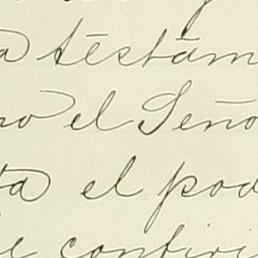 a testam
no el Seño
ta el pod
e confiri